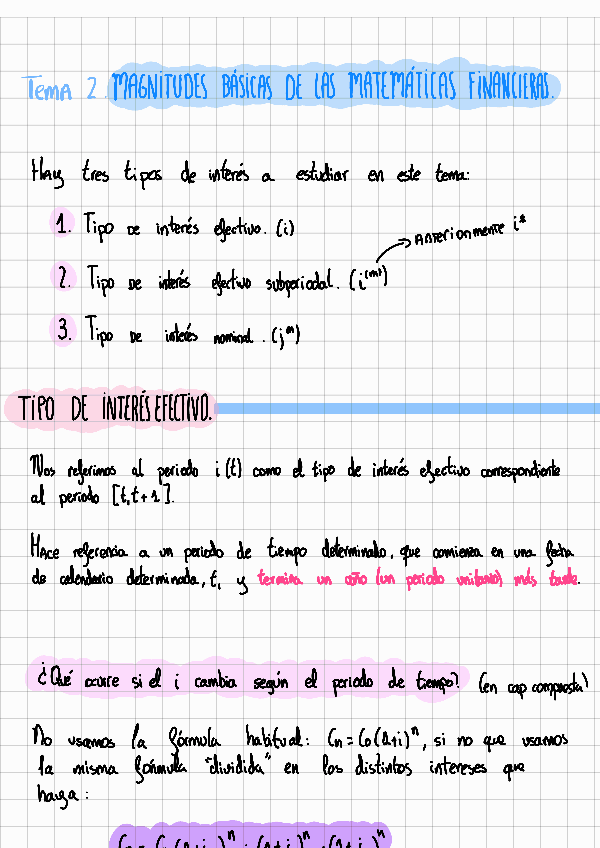 Tema 2. MAGNITUDES BÁSICAS DE LAS MATEMÁTICAS FINANCIERAS.
Hay tres tipos de interés a estudiar en este tema:
1. Tipo de interés efectivo. (i)
Anteriormente i*
2. Tipo de interés efectivo subperiodal. (i^(m))
3. Tipo de interés nominal. (j^m)
TIPO DE INTERÉS EFECTIVO.
Nos referimos al periodo i(t) como el tipo de interés efectivo correspondiente
al periodo [t, t+1].
Hace referencia a un periodo de tiempo determinado, que comienza en una fecha
de calendario determinada, t, y termina un año (un periodo unitario) más tarde.
¿Qué ocurre si el i cambia según el periodo de tiempo? (en cap compuesta)
No usamos la fórmula habitual: Cn = C0(1+i)^n, si no que usamos
la misma fórmula "dividida" en los distintos intereses que
haya: